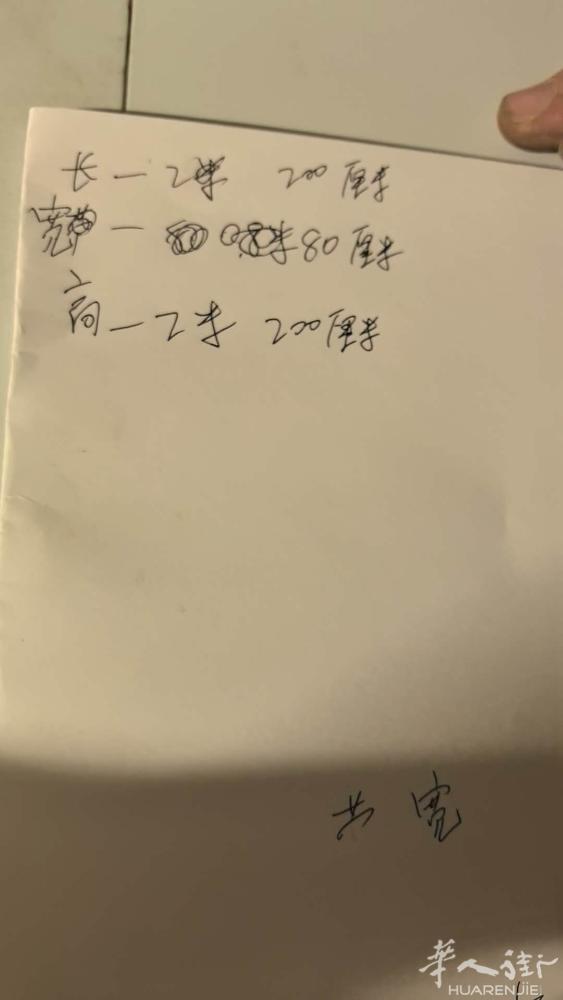 长一2米 200厘米
宽一 80厘米
高一2米 200厘米
共 宽
華人街
HUARENJIE